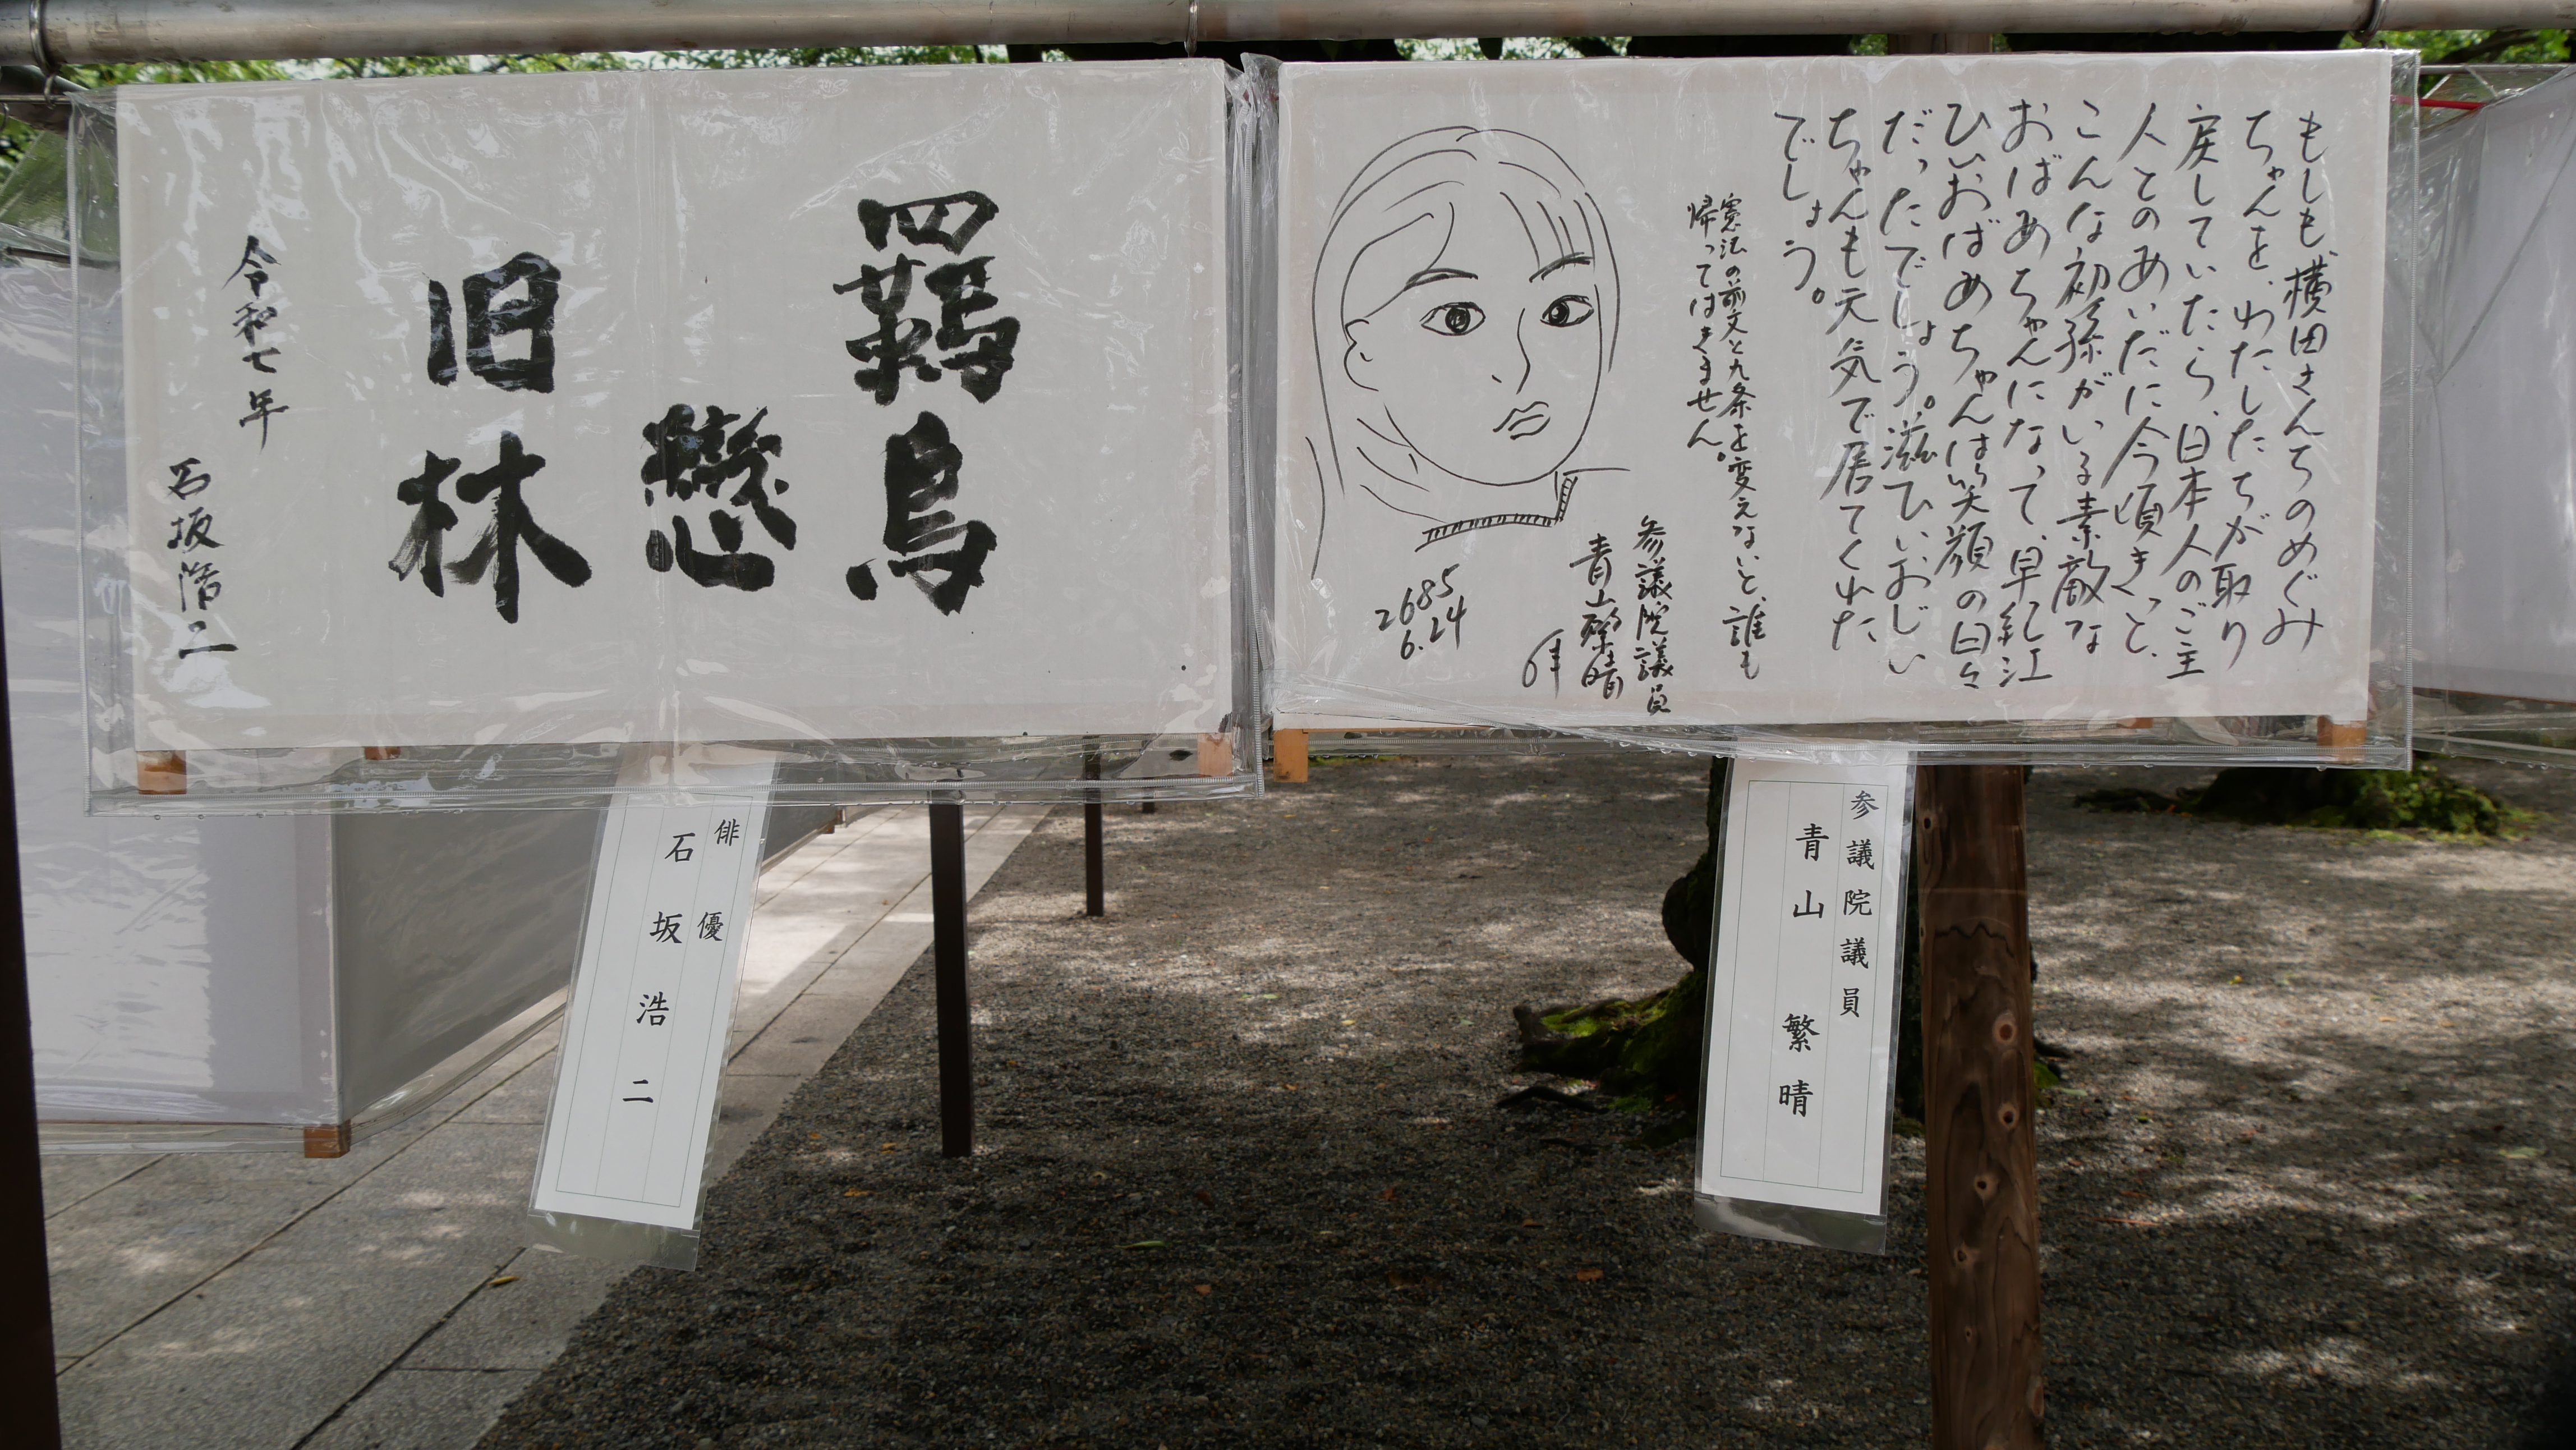 もしも、横田さんちのめぐみ
ちゃんを、わたしたちが取り
戻していたら、日本人のご主
人とのあいだに今頃きっと、
こんな初孫がいる素敵な
おばあちゃんになって、早紀江
ひいおばあちゃんは笑顔の日々
だったでしょう。滋ひいおじい
ちゃんも元気で居てくれた
でしょう。
憲法の前文と九条を変えないと、誰も
帰ってはきません。
参議院議員
青山繁晴
拝
2685
6.24
羈鳥
戀
旧林
令和七年
石坂浩二
参議院議員
青山繁晴
俳優
石坂浩二